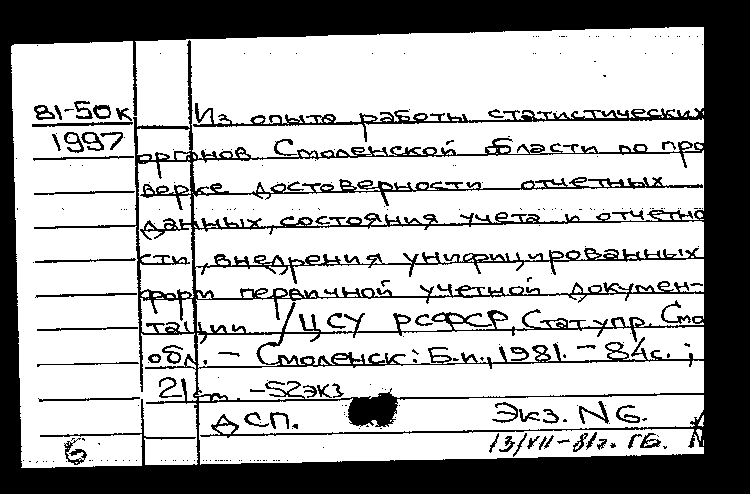 81-50к Из опыта работы статистических
1997
органов Смоленской области по про
верке достоверности отчетных
данных, состояния учета и отчетно
сти, внедрения унифицированных
форм первичной учетной докумен-
тации /ЦСУ РСФСР, Стат. упр. Смо
обл. - Смоленск: Б.и., 1981. - 84с. ;
21 см. -52экз
ДСП. Экз. N6.
13/VII-81г. ГБ.
Б